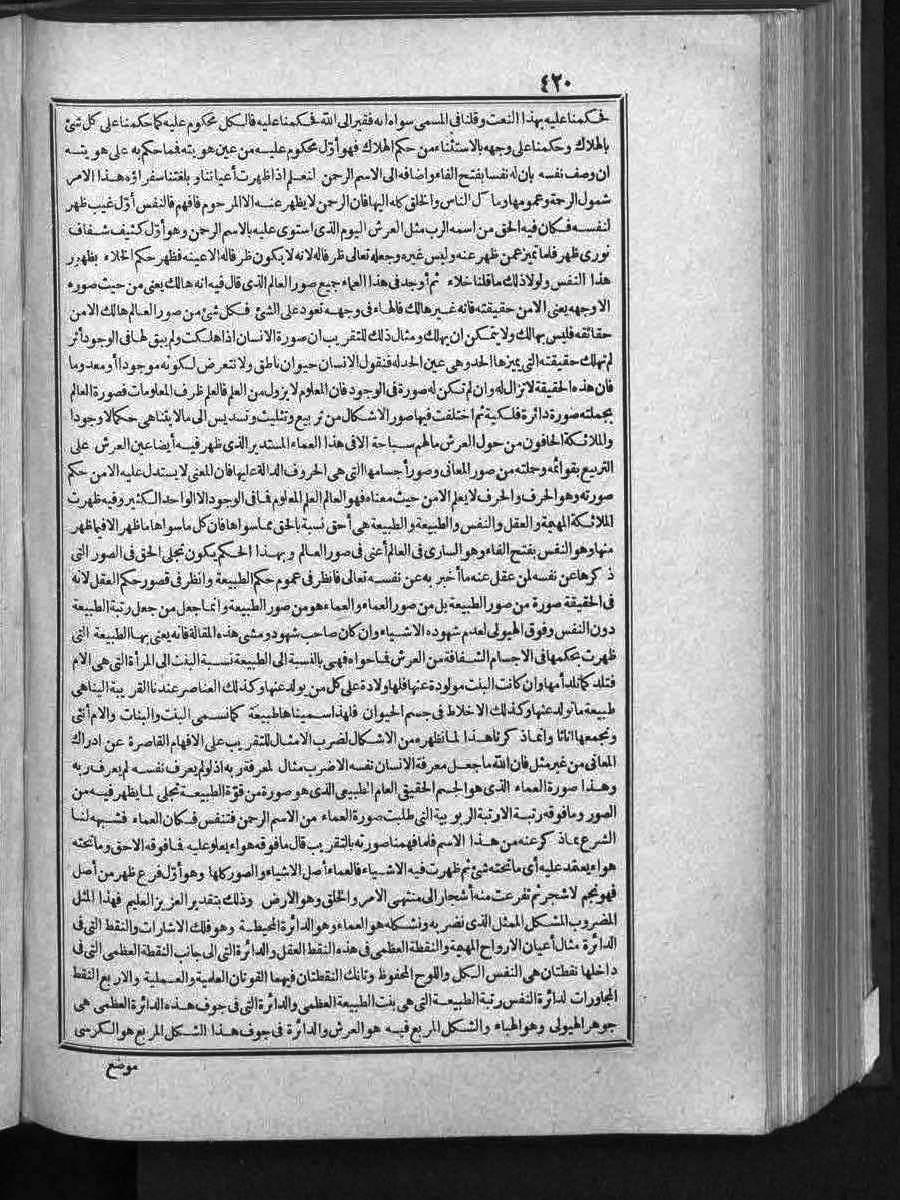 ٤٢٠
فحكمنا عليه بهذا النعت وقلنا في المسمى سواه انه فقير الى الله فحكمنا عليه فالكل محكوم عليه كما حكمنا على كل شئ
بالهلاك وحكمنا على وجهه بالاستثناء من حكم الهلاك فهو أوّل محكوم عليه من عين هويته فما حكم به على هويته
ان وصف نفسه بان له نفسا بفتح الفاء واضافه الى الاسم الرحمن لنعلم اذا ظهرت أعياننا وبلغتنا سفراؤه هذا الامر
شمول الرحمة وعمومها وما ل الناس والخلق كله اليها فان الرحمن لا يظهر عنه الا المرحوم فافهم فالنفس أوّل غيب ظهر
لنفسه فكان فيه الحق من اسمه الرب مثل العرش اليوم الذى استوى عليه بالاسم الرحمن وهو أوّل كثيف شفاف
نورى ظهر فلما تميز عمن ظهر عنه وليس غيره وجعله تعالى ظرفا له لانه لا يكون ظرفا له الا عينه فظهر حكم الخلاء بظهور
هذا النفس ولولا ذلك ما قلنا خلاء ثم أوجد فى هذا العماء جميع صور العالم الذى قال فيه انه هالك يعنى من حيث صوره
الا وجهه يعنى الا من حقيقته فانه غير هالك فالهاء فى وجهه تعود على الشئ فكل شئ من صور العالم هالك الا من
حقائقه فليس بهالك ولا يتمكن ان يهلك ومثال ذلك للتقريب ان صورة الانسان اذا هلكت ولم يبق لها فى الوجود أثر
لم تهلك حقيقته التى يميزها الحد وهى عين الحد له فنقول الانسان حيوان ناطق ولا نتعرض لكونه موجودا أو معدوما
فان هذه الحقيقة لا تزال له وان لم تكن له صورة فى الوجود فان المعلوم لا يزول من العلم فالعلم ظرف المعلومات فصورة العالم
بجملته صورة دائرة فلكية ثم اختلفت فيها صور الاشكال من تربيع وتثليث وتسديس الى ما لا يتناهى حكما لا وجودا
والملائكة الحافون من حول العرش ما لهم سباحة الا فى هذا العماء المستدير الذى ظهر فيه أيضا عين العرش على
التربيع بقوائمه وحملته من صور المعانى وصور أجسامها التى هى الحروف الدالة عليها فان المعنى لا يستدل عليه الا من حكم
صورته وهو الحرف والحرف لا يعلم الا من حيث معناه فهو العالم العلم المعلوم فما فى الوجود الا الواحد الكثير وفيه ظهرت
الملائكة المهيمة والعقل والنفس والطبيعة والطبيعة هى أحق نسبة بالحق مما سواها فان كل ما سواها ما ظهر الا فيما ظهر
منها وهو النفس بفتح الفاء وهو السارى فى العالم أعنى فى صور العالم وبهذا الحكم يكون تجلى الحق فى الصور التى
ذكرها عن نفسه لمن عقل عنه ما أخبر به عن نفسه تعالى فانظر فى عموم حكم الطبيعة وانظر فى قصور حكم العقل لانه
فى الحقيقة صورة من صور الطبيعة بل من صور العماء والعماء هو من صور الطبيعة وانما جعل من جعل رتبة الطبيعة
دون النفس وفوق الهيولى لعدم شهوده الاشياء وان كان صاحب شهود ومشى هذه المقالة فانه يعنى بها الطبيعة التى
ظهرت بحكمها فى الاجسام الشفافة من العرش فما حواه فهى بالنسبة الى الطبيعة نسبة البنت الى المرأة التى هى الام
فتلد كما تلد أمها وان كانت البنت مولودة عنها فلها ولادة على كل من يولد عنها وكذلك العناصر عندنا القريبة الينا هى
طبيعة ما تولد عنها وكذلك الاخلاط فى جسم الحيوان فلهذا سميناها طبيعة كما نسمى البنت والبنات والام أنثى
ونجمعها اناثا وانما ذكرنا هذا لما نظهره من الاشكال لضرب الامثال للتقريب على الافهام القاصرة عن ادراك
المعانى من غير مثل فان الله ما جعل معرفة الانسان نفسه الا ضرب مثال لمعرفة ربه اذ لو لم يعرف نفسه لم يعرف ربه
وهذا صورة العماء الذى هو الجسم الحقيقى العام الطبيعى الذى هو صورة من قوّة الطبيعة تجلى لما يظهر فيه من
الصور وما فوقه رتبة الا رتبة الربوبية التى طلبت صورة العماء من الاسم الرحمن فتنفس فكان العماء فشبهه لنا
الشرع بما ذكر عنه من هذا الاسم فلما فهمنا صورته بالتقريب قال ما فوقه هواء يعلو عليه فما فوقه الا حق وما تحته
هواء يعتمد عليه أى ما تحته شئ ثم ظهرت فيه الاشياء فالعماء أصل الاشياء والصور كلها وهو أوّل فرع ظهر من أصل
فهو نجم لا شجر ثم تفرعت منه أشجار الى منتهى الامر والخلق وهو الارض وذلك بتقدير العزيز العليم فهذا المثل
المضروب المشكل الممثل الذى نضربه ونشكله هو العماء وهو الدائرة المحيطة وهو فلك الاشارات والنقط التى فى
الدائرة مثال أعيان الارواح المهيمة والنقطة العظمى فى هذه النقط العقل والدائرة التى الى جانب النقطة العظمى التى فى
داخلها نقطتان هى النفس الكل واللوح المحفوظ وتانك النقطتان فيهما القوتان العلمية والعملية والاربع النقط
المجاورات لدائرة النفس رتبة الطبيعة التى هى بنت الطبيعة العظمى والدائرة التى فى جوف هذه الدائرة العظمى هى
جوهر الهيولى وهو الهباء والشكل المربع فيه هو العرش والدائرة فى جوف هذا الشكل المربع هو الكرسى
موضع